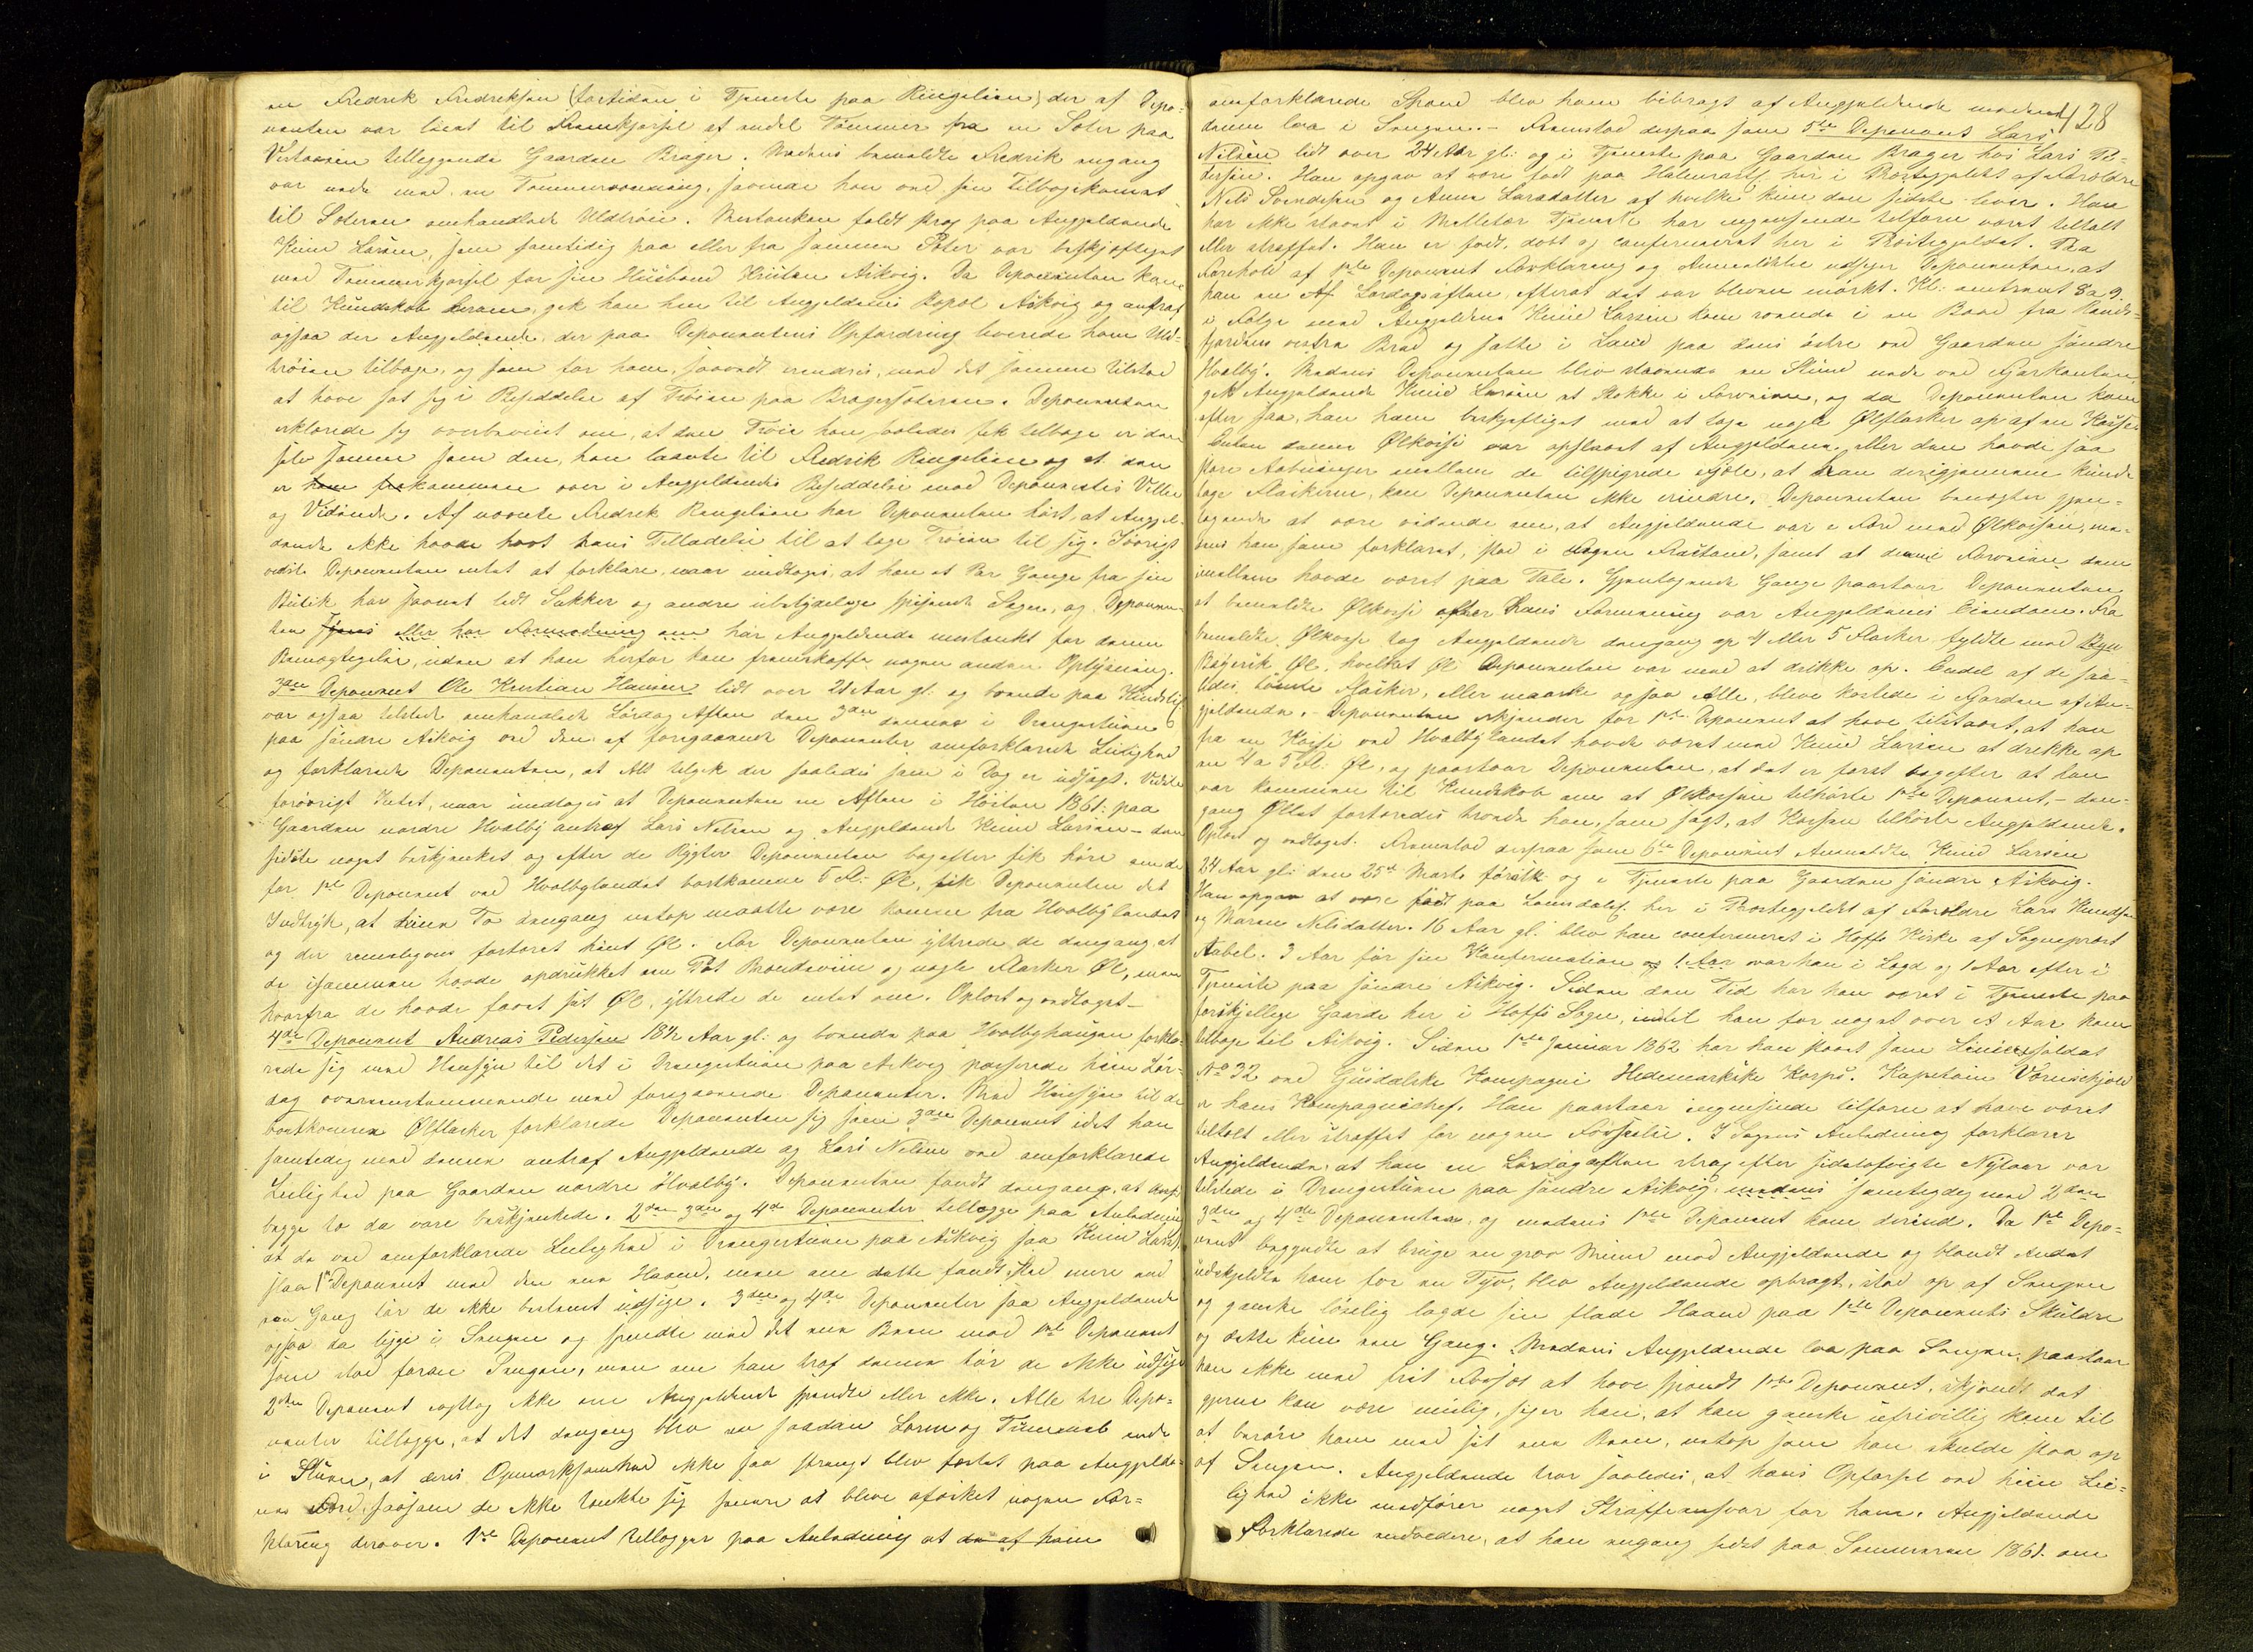 en Fredrik Fredriksen (fortiden i Tjeneste paa Ringelien) der af Depo-
nenten var leiet til Fremkjørsel af endel Tømmer fra en Sæter paa
Vestaasen tilliggende Gaarden Brager. Medens bemeldte Fredrik engang
var nede med en Tømmervending, savnede han ved sin Tilbagekomst
til Sæteren omhandlede Uldtrøie. Mistanken faldt strax paa Angjeldende
Knud Larsen, som samtidig paa eller fra samme Sæter var beskjæftiget
med Tømmerkjørsel for sin Husbond Kristen Aikvig. Da Deponenten kom
til Kundskab herom, gik han hen til Angjeldendes Bopæl Aikvig og antraf
ogsaa der Angjeldende, der paa Deponentens Opfordring leverede ham Uld-
trøien tilbage, og som for ham, saavidt erindres, med det samme tilstod
at have sat sig i Besiddelse af Trøien paa Bragersæteren. Deponenten
erklærede sig overbeviist om, at den Trøie han saaledes fik tilbage er den
selv samme som den, han laante til Fredrik Ringelien og at den
er kommen over i Angjeldendes Besiddelse mod Deponentens Villie
og Vidende. Af nævnte Fredrik Ringelien har Deponenten hørt, at Angjel-
dende ikke havde havt hans Tilladelse til at tage Trøien til sig. Iøvrigt
vidste Deponenten intet at forklare, naar undtages, at han et Par Gange fra sin
Butik har savnet lidt Sukker og andre ubetydelige spisende Sager, og Deponen-
ten har Angjeldende mistænkt for denne
Bemægtigelse, uden at han herfor kan fremskaffe nogen anden Oplysning.
3die Deponent Ole Kristian Hansen lidt over 21 Aar gl: og boende paa
var ogsaa tilstede omhandlede Lørdag Aften den 3die dennes i Drengestuen
paa søndre Aikvig ved den af foregaaende Deponenter omforklarede Leilighed
og forklarede Deponenten, at Alt tilgik der saaledes som i Dag er udsagt. Vidste
forøvrigt Intet, naar undtages at Deponenten en Aften i Høsten 1861. paa
Gaarden nordre Hvalby antraf Lars Nilsen og Angjeldende Knud Larsen – den
sidste noget beskjænket og efter de Rygter Deponenten bagefter fik høre om de
for 1ste Deponent ved Hvalbylandet bortkomne 5 Fl: Øl, fik Deponenten det
Indtryk, at hine To dengang netop maatte være komne fra Hvalbylandet
og der rimeligviis fortæret hint Øl. For Deponenten yttrede de dengang, at
de isammen havde opdrukket en Pot Brændeviin og nogle Flasker Øl, men
hvorfra de havde faaet sit Øl, yttrede de intet om. Oplæst og vedtaget –
4de Deponent Andreas Pedersen 18½ Aar gl: og boende paa Hvalbyhaugen forkla-
rede sig med Hensyn til det i Drengestuen paa Aikvig passerede hiin Lør-
dag overensstemmende med foregaaende Deponenter. Med Hensyn til de
bortkomne Ølflasker forklarede Deponenten sig som 3die Deponent idet han
samtidig med denne antraf Angjeldende og Lars Nilsen ved omforklarede
Leilighed paa Gaarden nordre Hvalby. Deponenten fandt dengang, at disse
begge to da vare beskjænkede. 2den 3die og 4de Deponenter tillægge paa Anledning
at de ved omforklarede Leilighed i Drengestuen paa Aikvig saa Knud Larsen
slaa 1ste Deponent med den ene Haand, men om dette fandt Sted mere end
een Gang tør de ikke bestemt udsige. 3die og 4de Deponenter saa Angjeldende
ogsaa da ligge i Sengen og spændte med det ene Been mod 1ste Deponent
som stod foran Sengen, men om han traf denne tør de ikke udsige
2den Deponent iagttog ikke om Angjeldende spændte eller ikke. Alle tre Depo-
nenter tillægge, at det dengang blev en saadan Larm og Tummel inde
i Stuen, at deres Opmærksomhed ikke saa strengt blev fæstet paa Angjelden-
des Færd, saasom de ikke tænkte sig senere at blive afæsket nogen For-
klaring derover. 1ste Deponent tillægger paa Anledning at
omforklarede Spænd blev ham bibragt af Angjeldende medens
denne laa i Sengen. – Fremstod derpaa som 5te Deponent Lars
428
Nilsen lidt over 24 Aar gl: og i Tjeneste paa Gaarden Brager hos Lars Pe-
dersen. Han opgav at være født paa her i Præstegjeldet af Forældre
Nils Svendsen og Anne Larsdatter af hvilke kun den sidste lever. Han
har ikke staaet i Militær Tjeneste har ingensinde tilforn været tiltalt
eller straffet. Han er født, døbt og confirmeret her i Præstegjeldet. Paa
Forehold af 1ste Deponent Forklaring og Anmeldelse udsiger Deponenten, at
han en Af Lørdagsaften, efterat det var blevet mørkt. Kl: omtrent 8 a 9.
i Følge med Angjeldende Knud Larsen kom roende i en Baad fra Rands-
fjordens vestre Bred og satte i Land paa dens østre ved Gaarden søndre
Hvalby. Medens Deponenten blev staaende en Stund nede ved Fjorkanten,
gik Angjeldende Knud Larsen et Stykke i Forveien, og da Deponenten kom
efter saa, han ham beskjæftiget med at tage nogle Ølflasker op af en Kasse
Enten denne Ølkasse var opslaaet af Angjeldende, eller den havde saa
store Aabninger mellem de tilspigrede Fjæle, at han derigjennem kunde
tage Flaskerne, kan Deponenten ikke erindre. Deponenten benægter gjen-
tagende at være vidende om, at Angjeldende var i Færd med Ølkassen, me-
dens han som forklaret, stod i nogen Frastand, samt at denne i Forveien dem
imellem havde været paa Tale. Gjentagende Gange paastaar Deponenten
at bemeldte Ølkasse efter hans Formening var Angjeldendes Eiendom. Fra
bemeldte Ølkasse tog Angjeldende dengang op 4 eller 5 Flasker fyldte med
Bayersk Øl, hvilket Øl Deponenten var med at drikke op. Endel af de saa-
ledes tømte Flasker, eller maaske ogsaa Alle, bleve kastede i Fjorden af An-
gjeldende. – Deponenten erkjender for 1ste Deponent at have tilstaaet, at han
fra en Kasse ved Hvalbylandet havde været med Knud Larsen at drikke op
en 4 a 5 Fl: Øl, og paastaar Deponenten, at det er først bagefter at han
var kommen til Kundskab om at Ølkassen tilhørte 1ste Deponent, – den-
gang Øllet fortæredes troede han, som sagt, at Kassen tilhørte Angjeldende.
Oplæst og vedtaget. Fremstod derpaa som 6te Deponent Anmeldte Knud Larsen
24 Aar gl: den 25de Marts førstk: og i Tjeneste paa Gaarden søndre Aikvig.
Han opgav at være født paa her i Præstegjeldet af Forældre Lars Knudsen
og Maren Nilsdatter. 16 Aar gl. blev han confirmeret i Hoffs Kirke af Sogneprest
Aabel. 3 Aar før sin Konfirmation og 1 Aar var han i Lægd og 1 Aar efter i
Tjeneste paa søndre Aikvig. Siden den Tid har han været i Tjeneste paa
forskjellige Gaarde her i Hoffs Sogn, indtil han for noget over et Aar kom
tilbage til Aikvig. Siden 1ste Januar 1862 har han staaet som Liniesoldat
No 32 ved Gusdalske Kompagni Hedemarkske Korps. Kapitain
er hans Kompagnichef. Han paastaar ingensinde tilforn at have været
tiltalt eller straffet for nogen Forseelse. I Sagens Anledning forklarer
Angjeldende, at han en Lørdagaften strax efter sidstafvigte Nytaar var
tilstede i Drengestuen paa søndre Aikvig, medens samtidig med 2den
3die og 4de Deponenter, og medens 1ste Deponent kom derind. Da 1ste Depo-
nent begyndte at bruge en grov Mund mod Angjeldende og blandt Andet
udskjeldte ham for en Tyv, blev Angjeldende opbragt, stod op af Sengen
og ganske løselig lagde sin flade Haand paa 1ste Deponents Skuldre
og dette kun een Gang. Medens Angjeldende laa paa Sengen, paastaar
han ikke med frit Forsæt at have spændt 1ste Deponent, skjøndt det
gjerne kan være mulig, siger han, at han ganske ufrivillig kom til
at berøre ham med sit ene Been, netop som han skulde staa op
af Sengen. Angjeldende tror saaledes, at hans Opførsel ved hiin Lei-
lighed ikke medfører noget Straffeansvar for ham. Angjeldende
forklarede endvidere, at han engang sidst paa Sommeren 1861. om